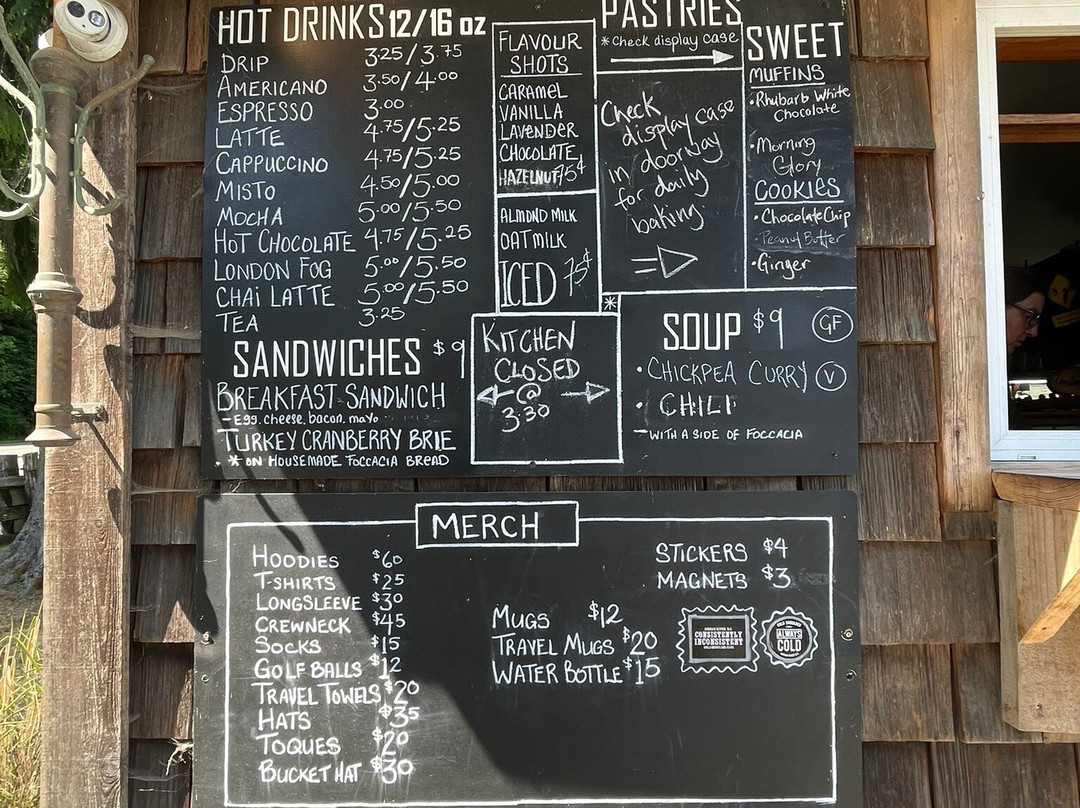 HOT DRINKS 12/16 oz
DRIP 3.25/3.75
AMERICANO 3.50/4.00
ESPRESSO 3.00
LATTE 4.75/5.25
CAPPUCCINO 4.75/5.25
MISTO 4.50/5.00
MOCHA 5.00/5.50
HOT CHOCOLATE 4.75/5.25
LONDON FOG 5.00/5.50
CHAI LATTE 5.00/5.50
TEA 3.25
FLAVOUR
SHOTS
CARAMEL
VANILLA
LAVENDER
CHOCOLATE
HAZELNUT 75¢
ALMOND MILK
OAT MILK
ICED 75¢
PASTRIES
*Check display case
Check
display case
in doorway
for daily
baking
SWEET
MUFFINS
•Rhubarb White
Chocolate
•Morning
Glory
COOKIES
•Chocolate Chip
•Peanut Butter
•Ginger
SANDWICHES $9
BREAKFAST SANDWICH
-Egg, cheese, bacon, mayo
TURKEY CRANBERRY BRIE
* ON HOUSEMADE FOCCACIA BREAD
KITCHEN
CLOSED
@
3:30
*
SOUP $9 GF
•CHICKPEA CURRY V
• CHILI
-WITH A SIDE OF FOCCACIA
MERCH
HOODIES $60
T-SHIRTS $25
LONGSLEEVE $30
CREWNECK $45
SOCKS $15
GOLF BALLS $12
TRAVEL TOWELS $20
HATS $35
TOQUES $20
BUCKET HAT $30
MUGS $12
TRAVEL MUGS $20
WATER BOTTLE $15
STICKERS $4
MAGNETS $3
CONSISTENTLY
INCONSISTENT
ALWAYS
COLD